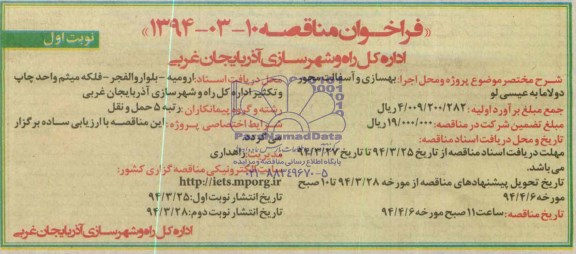 «فراخوان مناقصه ۱۰-۰۳-۱۳۹۴»
نوبت اول
اداره کل راه و شهرسازی آذربایجان غربی
شرح مختصر موضوع پروژه و محل اجرا: بهسازی و آسفالت محور
دولاما به عیسی لو
جمع مبلغ برآورد اولیه: ۴/۰۰۹/۲۰۰/۲۸۲ ریال
مبلغ تضمین شرکت در مناقصه: ۱۹/۰۰۰/۰۰۰ ریال
تاریخ و محل دریافت اسناد مناقصه:
مهلت دریافت اسناد مناقصه از تاریخ ۹۴/۳/۲۵ تا تاریخ ۹۴/۳/۲۷
می باشد.
تاریخ تحویل پیشنهادهای مناقصه از مورخه ۹۴/۳/۲۸ تا ۱۰ صبح
مورخه ۹۴/۴/۶
تاریخ مناقصه: ساعت ۱۱ صبح مورخه ۹۴/۴/۶
محل دریافت اسناد: ارومیه - بلوار والفجر - فلکه میثم واحد چاپ
و تکثیر اداره کل راه و شهرسازی آذربایجان غربی
رشته و گروه پیمانکاران: رتبه ۵ حمل و نقل
شرایط اختصاصی پروژه: این مناقصه با ارزیابی ساده برگزار
می گردد.
مدیریت: راهداری
سایت الکترونیکی مناقصه گزاری کشور:
http://iets.mporg.ir
تاریخ انتشار نوبت اول: ۹۴/۳/۲۵
تاریخ انتشار نوبت دوم: ۹۴/۳/۲۸
اداره کل راه و شهرسازی آذربایجان غربی
ParsNamadData
پایگاه اطلاع رسانی مناقصه و مزایده
۰۲۱-۸۸۳۴۹۶۷۰-۵